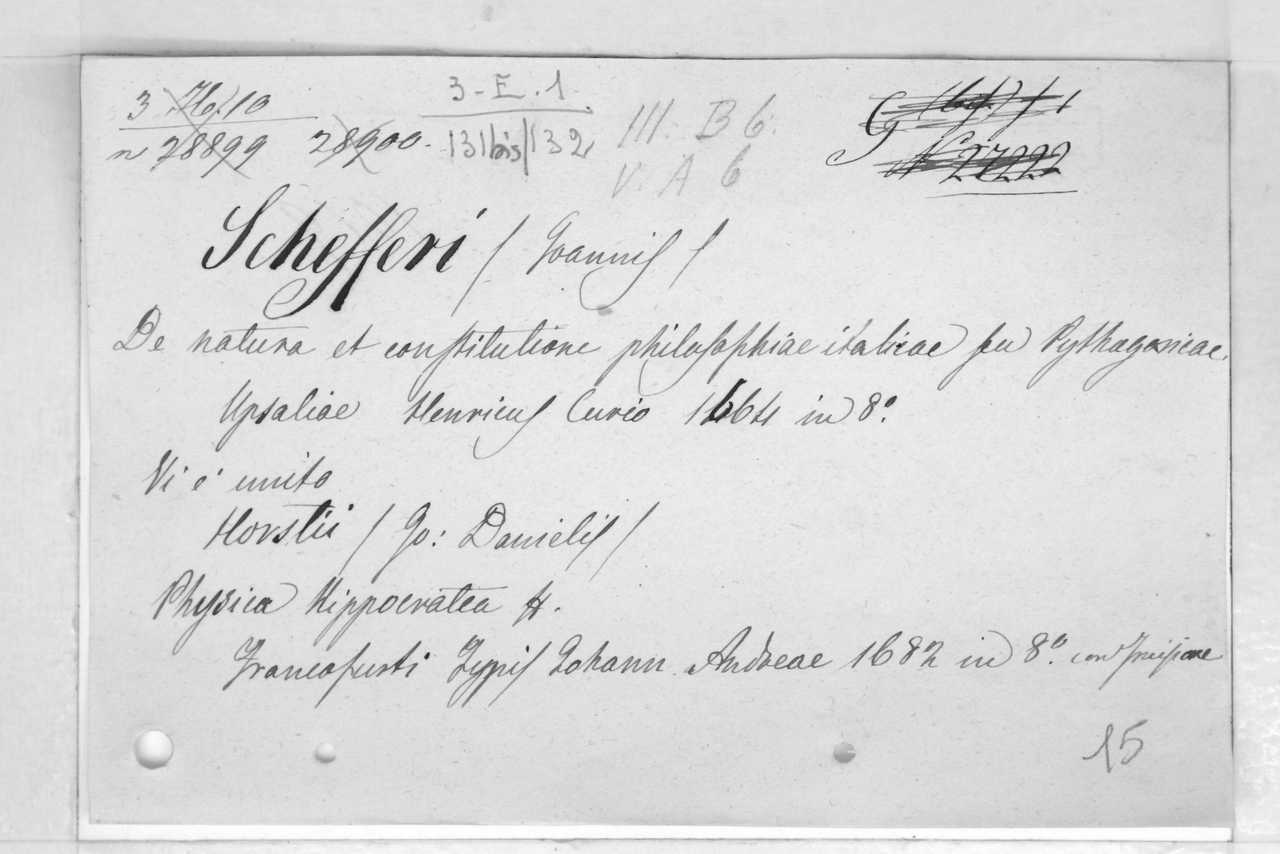 3 10 3-E.1 III. B 6. G
n 28899 28900. 131bis/132 V. A 6 N° 27222
Schefferi (Joannis)
De natura et constitutione philosophiae italicae seu Pythagoricae.
Upsaliae Henricus Curio 1664 in 8°.
Vi è unito
Horstii (Jo: Danielis)
Physica Hippocratea &.
Francofurti Typis Johann Andreae 1682 in 8°. con Incisione
15